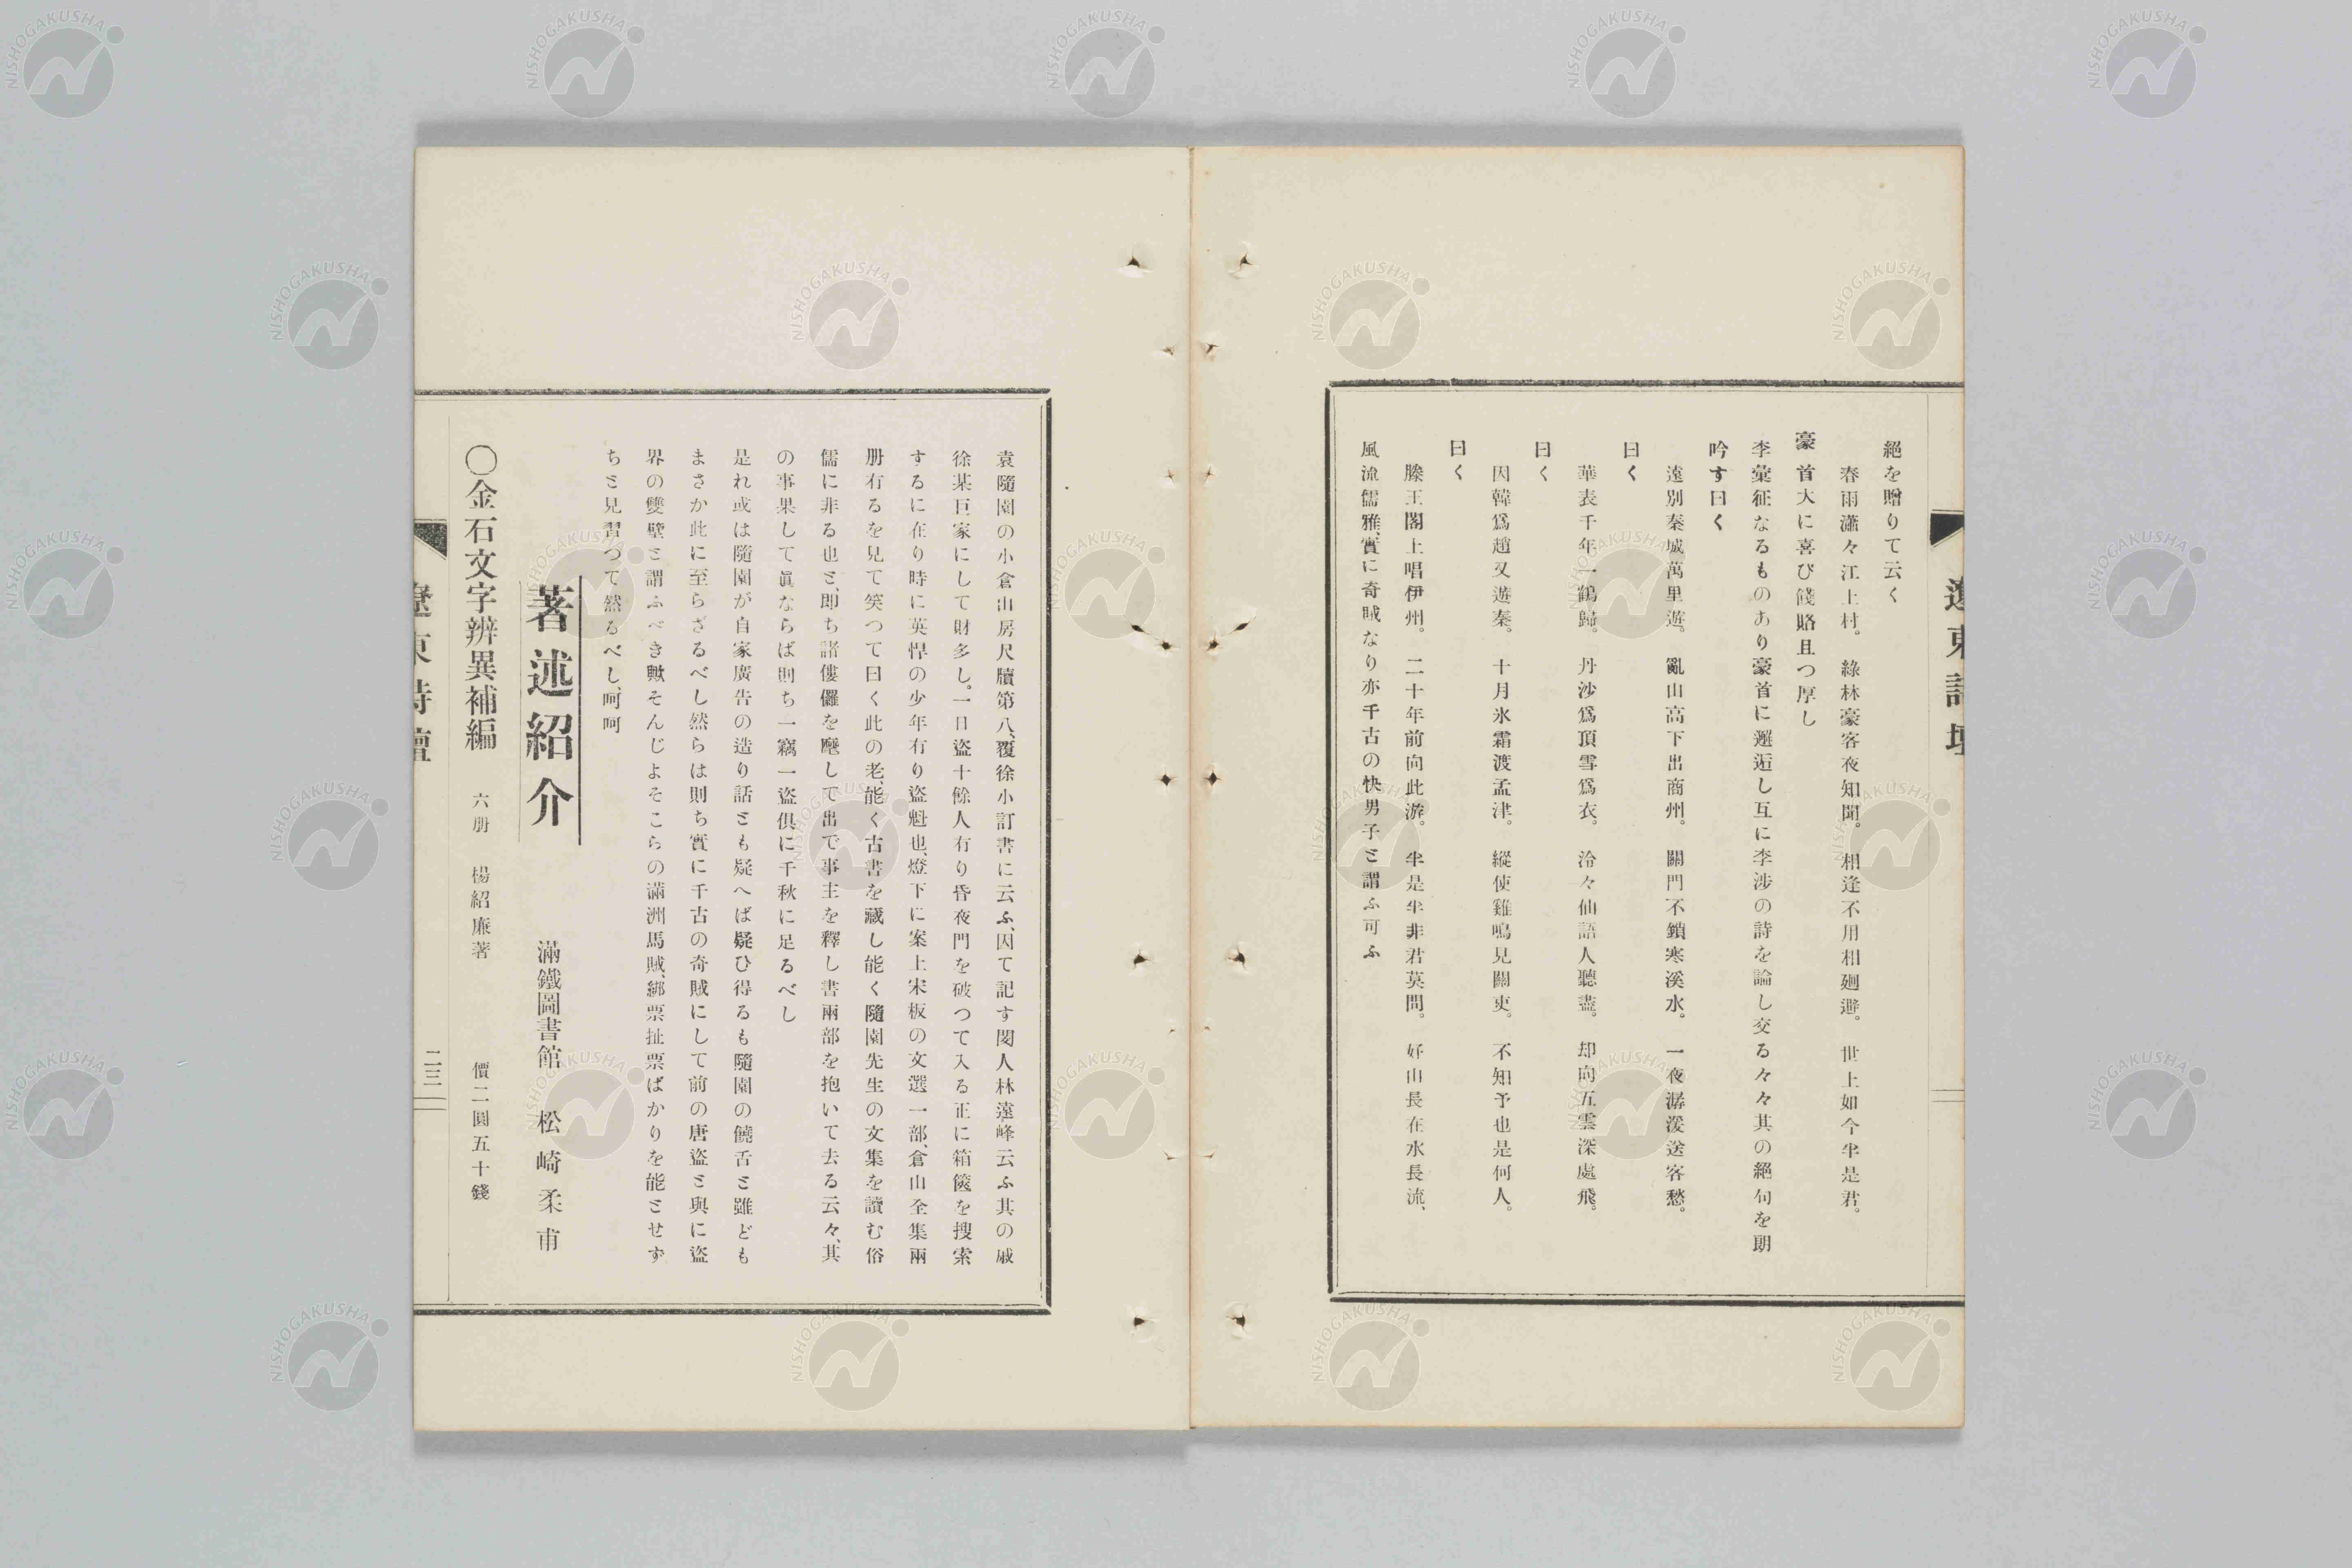 遼東詩壇
絕を贈りて云く
春雨瀟々江上村。綠林豪客夜知聞。相逢不用相廻避。世上如今半是君。
豪首大に喜び餞賂且つ厚し
李彙征なるものあり豪首に邂逅し互に李涉の詩を論し交る々々其の絕句を朗
吟す曰く
遠別秦城萬里遊。亂山高下出商州。關門不鎖寒溪水。一夜潺湲送客愁。
曰く
華表千年一鶴歸。丹沙爲頂雪爲衣。泠々仙語人聽盡。却向五雲深處飛。
曰く
因韓爲趙又遊秦。十月氷霜渡孟津。縱使雞鳴見關吏。不知予也是何人。
曰く
滕王閣上唱伊州。二十年前向此游。半是半非君莫問。好山長在水長流、
風流儒雅、實に奇賊なり亦千古の快男子と謂ふ可ふ
袁隨園の小倉山房尺牘第八、覆徐小訂書に云ふ、因て記す閔人林遠峰云ふ其の戚
徐某巨家にして財多し。一日盜十餘人有り昏夜門を破つて入る正に箱篋を搜索
するに在り時に英悍の少年有り盜魁也、燈下に案上宋板の文選一部、倉山全集兩
册有るを見て笑つて曰く此の老、能く古書を藏し能く隨園先生の文集を讀む俗
儒に非る也と、即ち諸僂儸を麾して出で事主を釋し書兩部を抱いて去る云々、其
の事果して眞ならば則ち一竊一盜俱に千秋に足るべし
是れ或は隨園が自家廣告の造り話とも疑へば疑ひ得るも隨園の饒舌と雖ども
まさか此に至らざるべし然らは則ち實に千古の奇賊にして前の唐盜と與に盜
界の雙壁と謂ふべき歟そんじよそこらの滿洲馬賊、綁票扯票ばかりを能とせず
ちと見習つて然るべし、呵呵
著述紹介
滿鐵圖書館 松崎柔甫
〇金石文字辨異補編 六册 楊紹廉著 價二圓五十錢
遼東詩壇
二三